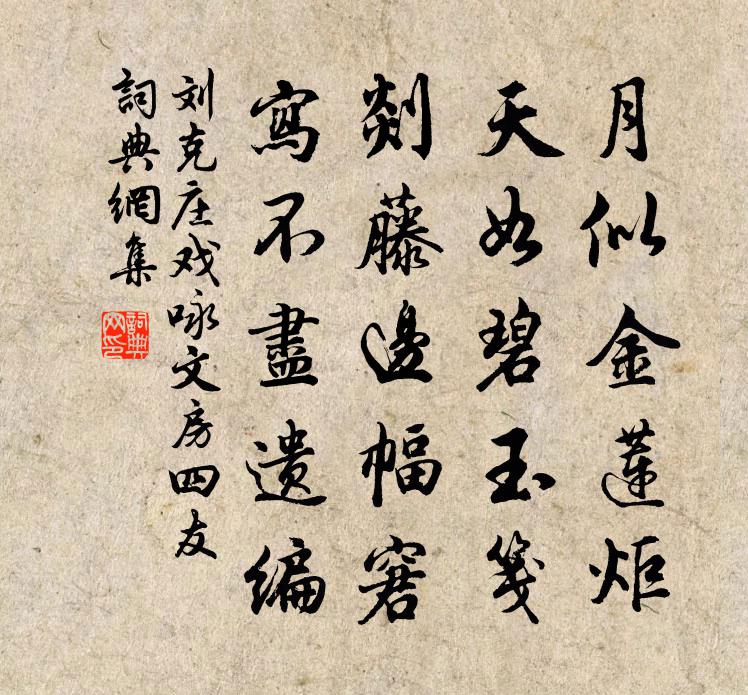 月似金蓮炬
天如碧玉箋
剡藤邊幅窘
寫不盡遺編
刘克庄戏咏文房四友
詞典網集
詞典网印